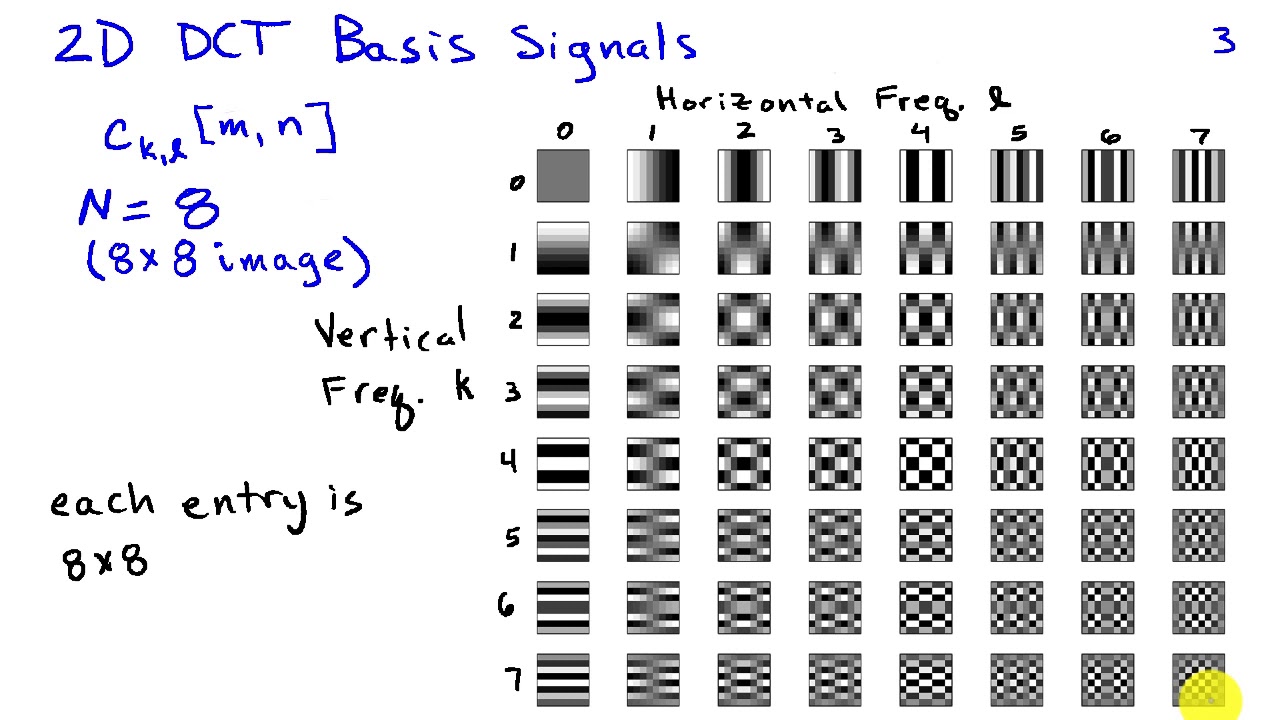 2D DCT Basis Signals
3
C_{k,l}[m,n]
N = 8
(8×8 image)
Horizontal Freq. l
0 1 2 3 4 5 6 7
0
1
2
3
4
5
6
7
Vertical
Freq. k
each entry is
8×8